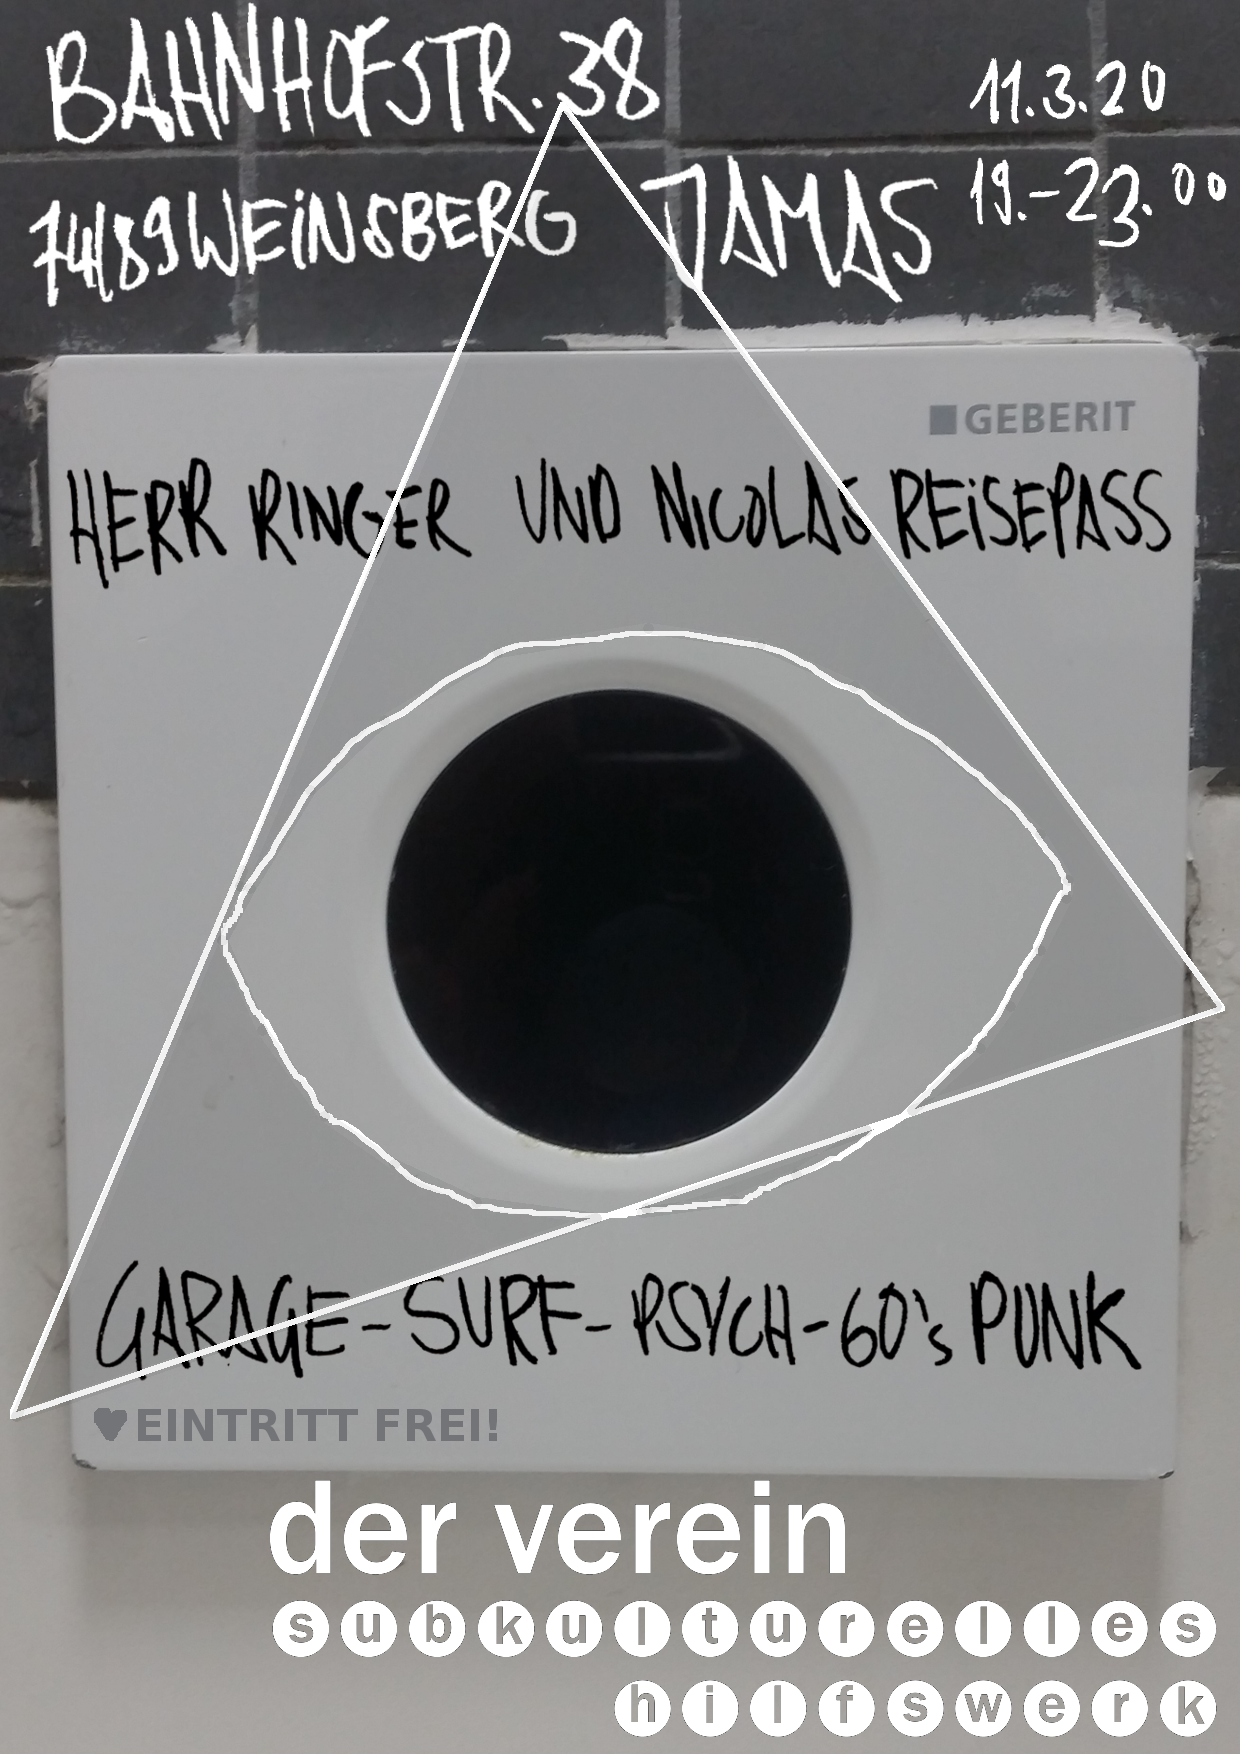 BAHNHOFSTR. 38
11.3.20
74189 WEINSBERG
DAMAS
19.-23.00
GEBERIT
HERR RINGER UND NICOLAS REISEPASS
GARAGE-SURF-PSYCH-60's PUNK
♥EINTRITT FREI!
der verein
subkulturelles
hilfswerk